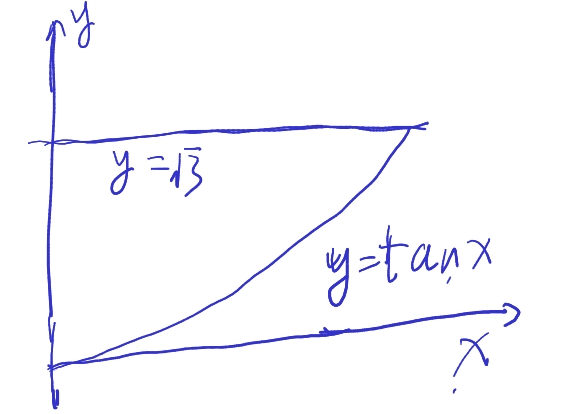 y
y=√3
y=tanx
x